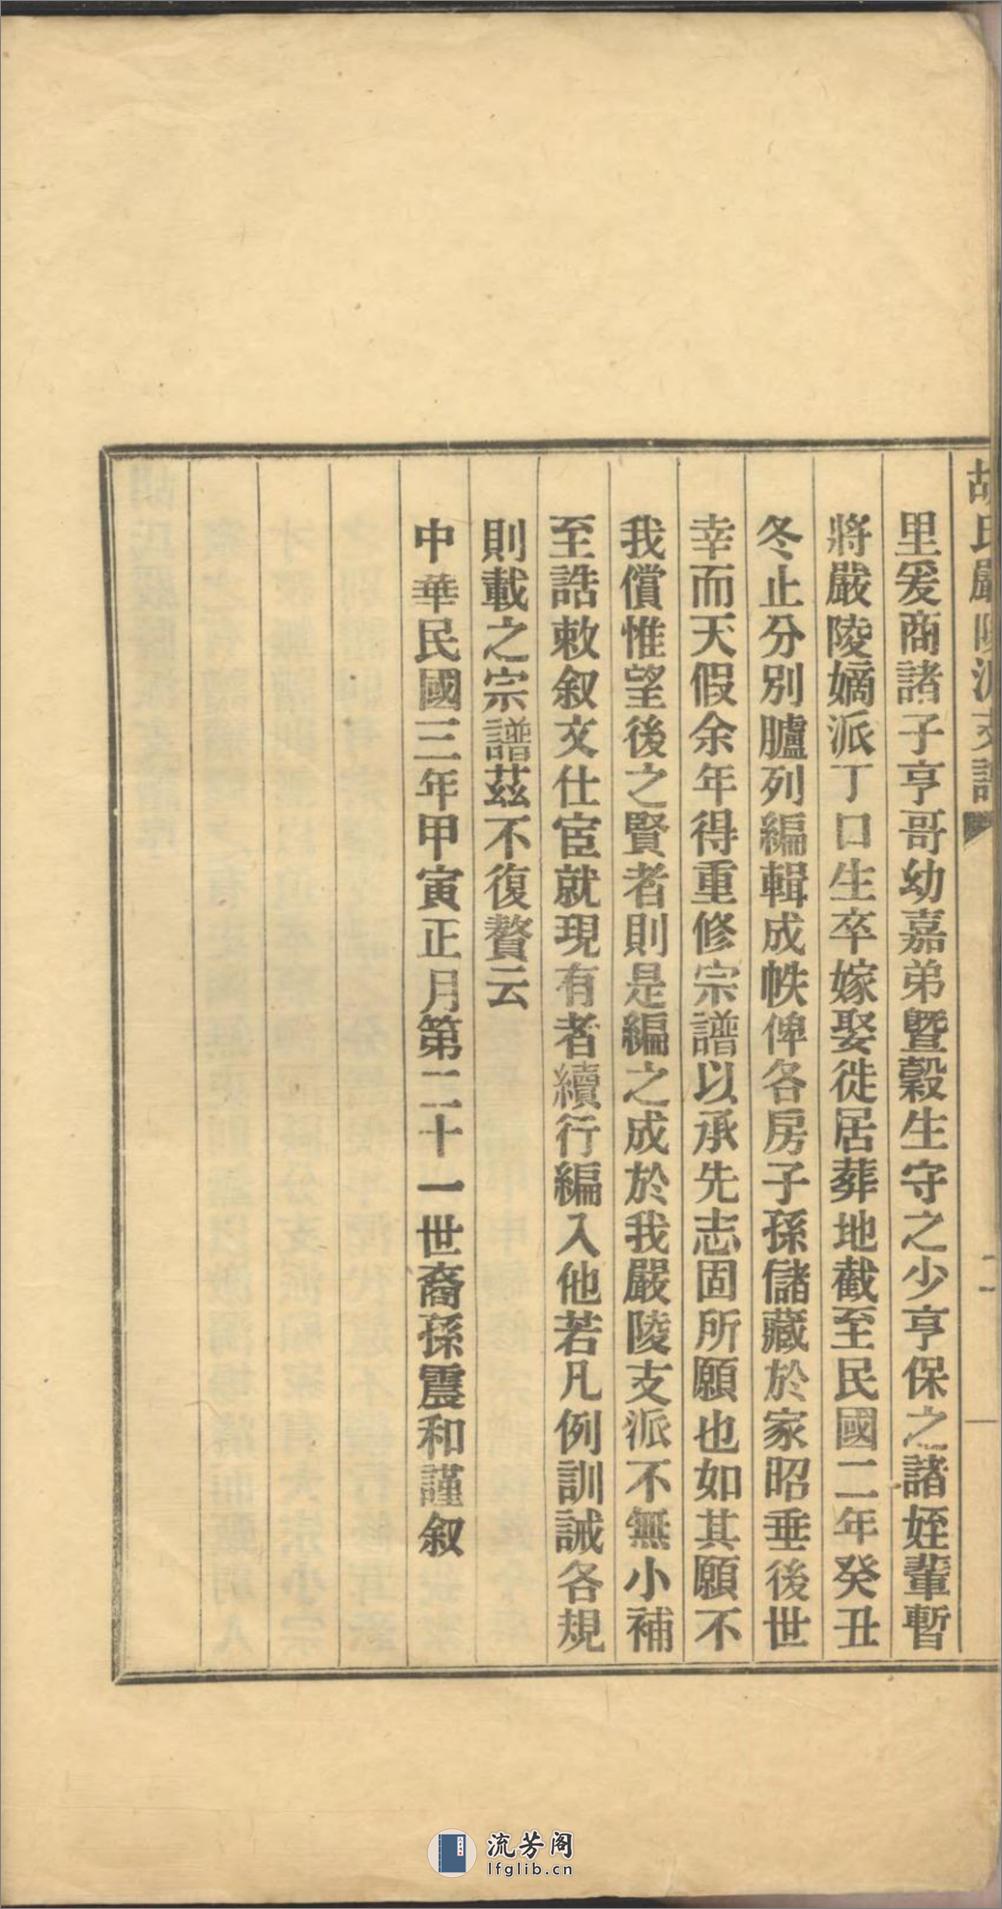 胡氏嚴陵派支譜
里爰商諸子亨哥幼嘉弟暨穀生守之少亨保之諸姪輩暫
將嚴陵嫡派丁口生卒嫁娶徙居葬地截至民國二年癸丑
冬止分別臚列編輯成帙俾各房子孫儲藏於家昭垂後世
幸而天假余年得重修宗譜以承先志固所願也如其願不
我償惟望後之賢者則是編之成於我嚴陵支派不無小補
至誥敕叙文仕宦就現有者續行編入他若凡例訓誡各規
則載之宗譜茲不復贅云
中華民國三年甲寅正月第二十一世裔孫震和謹叙
流芳阁
lfglib.cn